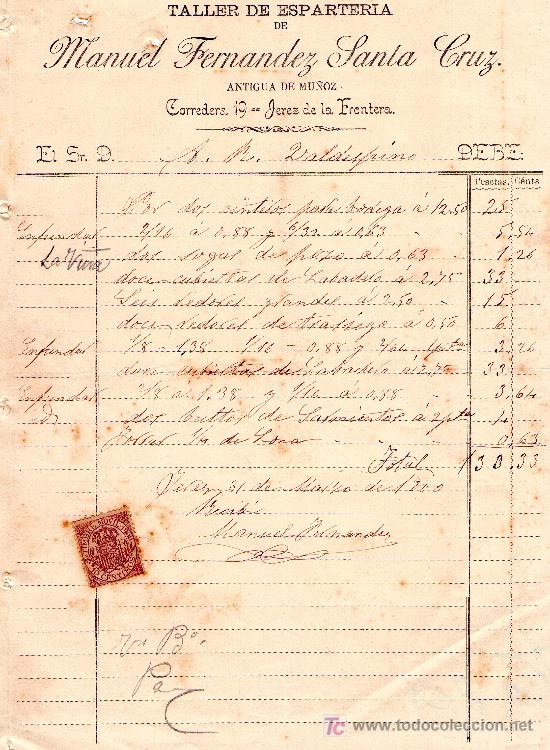 TALLER DE ESPARTERIA
DE
Manuel Fernandez Santa Cruz.
ANTIGUA DE MUÑOZ
Corredera 19 == Jerez de la Frontera.
El Sr. D. A. R. Valdespino DEBE:
Pesetas. Cénts
Por dos bodega á 12,50 25
Enfundar 2/16 á 0.88 y 6/32 á 0.63 5,54
La Viña dos sogas de pozo á 0.63 1,26
doce cubiertas de á 2,75 33
Seis redores grandes á 2.50 15
doce redores de trasiego á 0,50 6
Enfundar 1/8 - 1,38 1/16 - 0.88 y 3,26
doce cubiertas de á 2,75 33
Enfundar 2/8 al 1.38 y 1/16 á 0,88 3,64
dos de Sarmientos á 2 14
de Lona 0,63
Total 133.33
Jerez 31 de Marzo de 1900
Recibí
Manuel Fernandez
Vto Bo.
TC www.todocoleccion.net